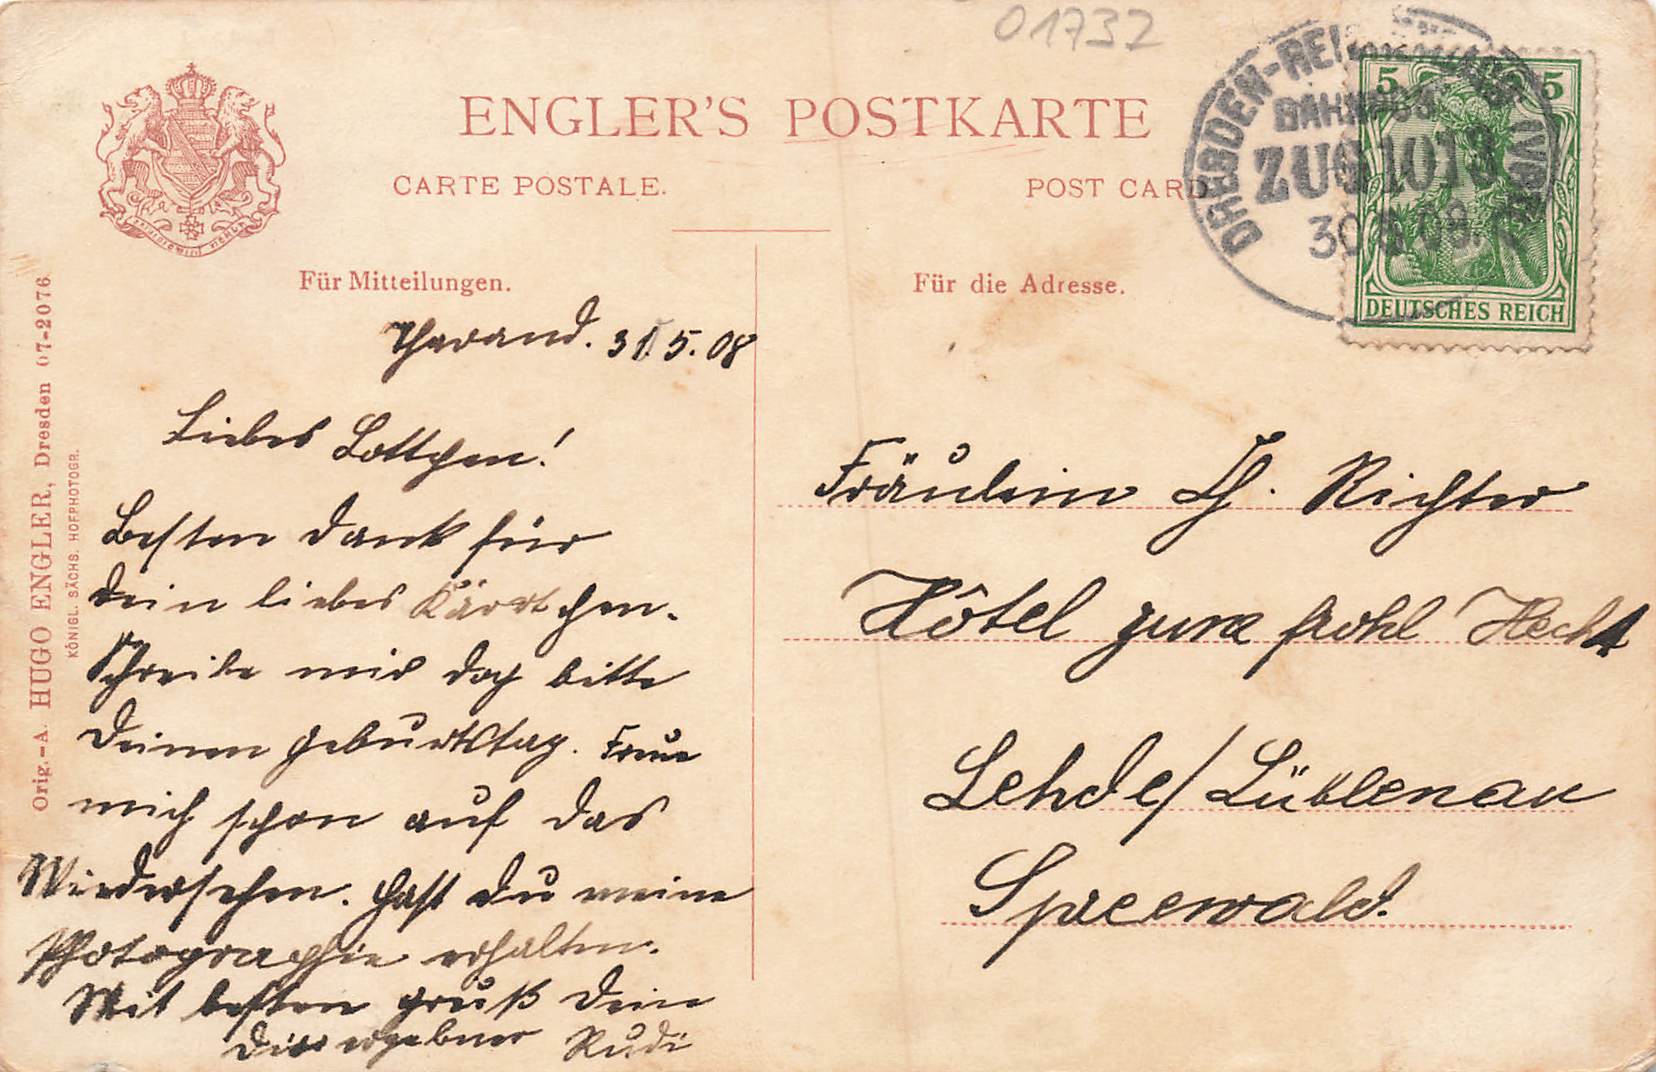 01732
ENGLER'S POSTKARTE
CARTE POSTALE.
POST CARD
DRESDEN-REI
BAHNPOST
ZUG 1013
30 5 08.
5 5
DEUTSCHES REICH
Für Mitteilungen.
Für die Adresse.
Orig.-A. HUGO ENGLER, Dresden 07-2076
KÖNIGL. SÄCHS. HOFPHOTOGR.
Tharand. 31 5. 08
Liebes Lottchen!
Besten Dank für
Dein liebes Kärtchen.
Schreibe mir doch bitte
Deinen Geburtstag. Freue
mich schon auf das
Wiedersehen. Hast Du meine
Photographie erhalten.
Mit besten Gruß Dein
Dir ergebner Rudi
Fräulein Ch. Richter
Hôtel zum frohl Hecht
Lehde/Lübbenau
Spreewald.